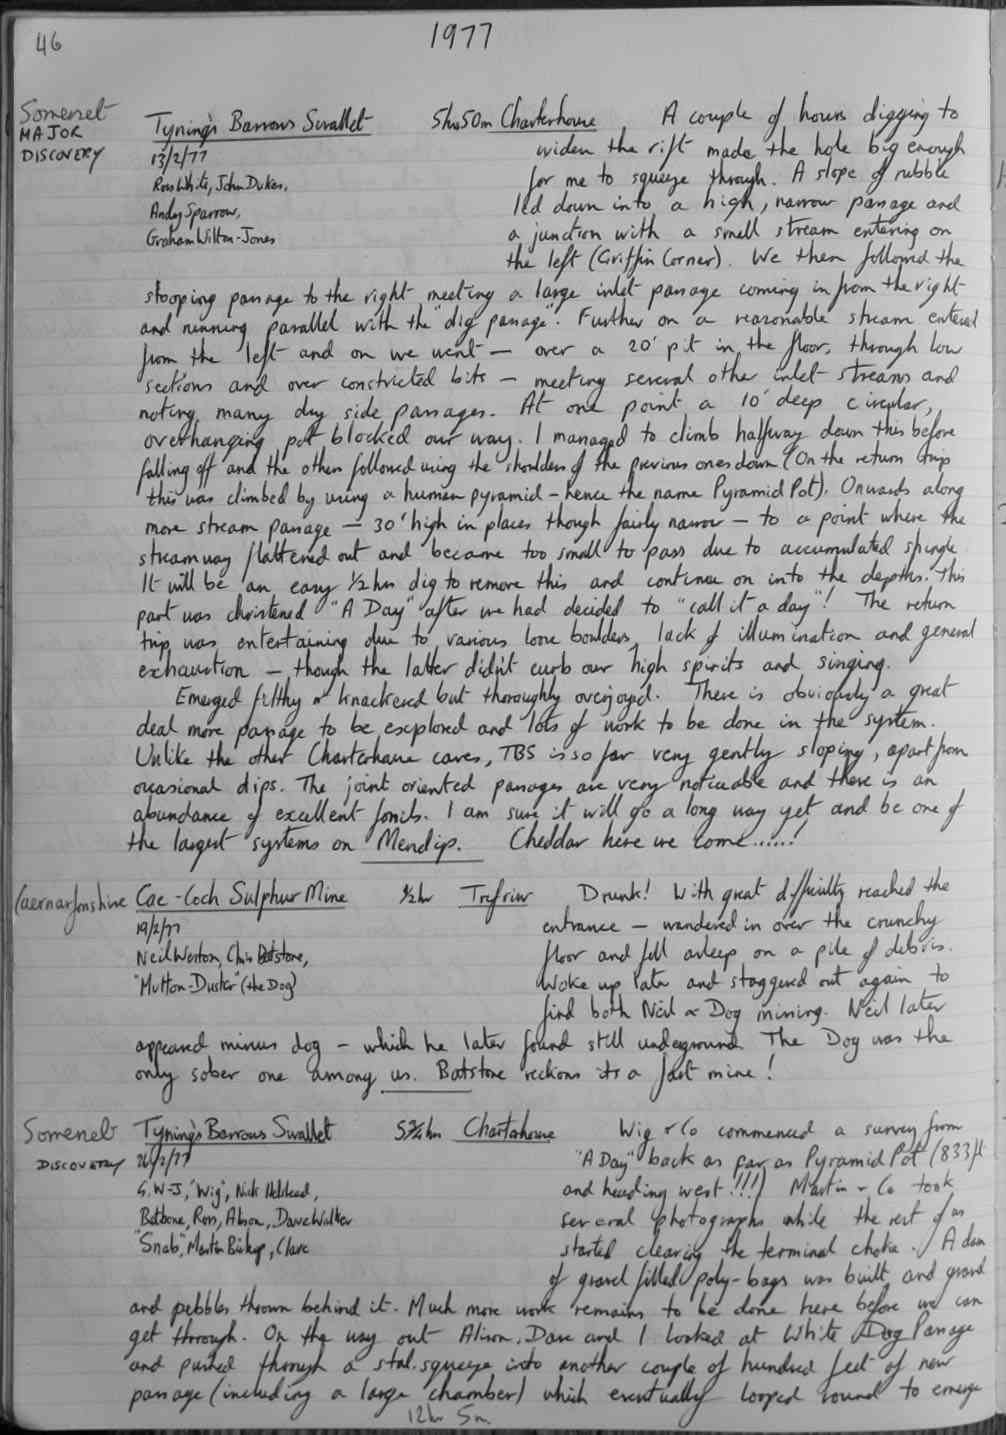 46
1977
Somerset
MAJOR
DISCOVERY
Tyning's Barrows Swallet 5hrs50m Charterhouse A couple of hours digging to
13/2/77 widen the rift made the hole big enough
Ross White, John Dukes, for me to squeeze through. A slope of rubble
Andy Sparrow, led down into a high, narrow passage and
Graham Wilton-Jones a junction with a small stream entering on
the left (Griffin Corner). We then followed the
stooping passage to the right meeting a large inlet passage coming in from the right
and running parallel with the "dig passage". Further on a reasonable stream entered
from the left and on we went — over a 20' pit in the floor, through low
sections and over constricted bits — meeting several other inlet streams and
noting many dry side passages. At one point a 10' deep circular,
overhanging pot blocked our way. I managed to climb halfway down this before
falling off and the others followed using the shoulders of the previous ones down (On the return trip
this was climbed by using a human pyramid - hence the name Pyramid Pot). Onwards along
more stream passage — 30' high in places though fairly narrow — to a point where the
streamway flattened out and became too small to pass due to accumulated shingle
It will be an easy ½ hrs dig to remove this and continue on into the depths. This
part was christened "A Day" after we had decided to "call it a day"! The return
trip was entertaining due to various loose boulders, lack of illumination and general
exhaustion — though the latter didn't curb our high spirits and singing.
Emerged filthy & knackered but thoroughly overjoyed. There is obviously a great
deal more passage to be explored and lots of work to be done in the system.
Unlike the other Charterhouse caves, TBS is so far very gently sloping, apart from
occasional dips. The joint oriented passages are very noticeable and there is an
abundance of excellent fossils. I am sure it will go a long way yet and be one of
the largest systems on Mendip. Cheddar here we come......!
Caernarfonshire Cae-Coch Sulphur Mine ½hr Trefriw Drunk! With great difficulty reached the
19/2/77 entrance — wandered in over the crunchy
Neil Weston, Chris Batstone, floor and fell asleep on a pile of debris.
"Mutton-Duster" (the Dog) Woke up later and staggered out again to
find both Neil & Dog missing. Neil later
appeared minus dog - which he later found still underground. The Dog was the
only sober one among us. Batstone reckons its a fart mine!
Somerset Tyning's Barrows Swallet 5¾hrs Charterhouse Wig & Co commenced a survey from
DISCOVERY 26/2/77 "A Day" back as far as Pyramid Pot (833ft
G.W-J, "Wig", Nick Halstead, and heading west!!!) Martin & Co took
Batstone, Ross, Alison, Dave Walker several photographs while the rest of us
"Snab", Martin Bishop, Clare started clearing the terminal choke. A dam
of gravel filled poly-bags was built and gravel
and pebbles thrown behind it. Much more work remains to be done here before we can
get through. On the way out Alison, Dave and I looked at White Dog Passage
and pushed through a stal. squeeze into another couple of hundred feet of new
passage (including a large chamber) which eventually looped round to emerge
12hr 5m